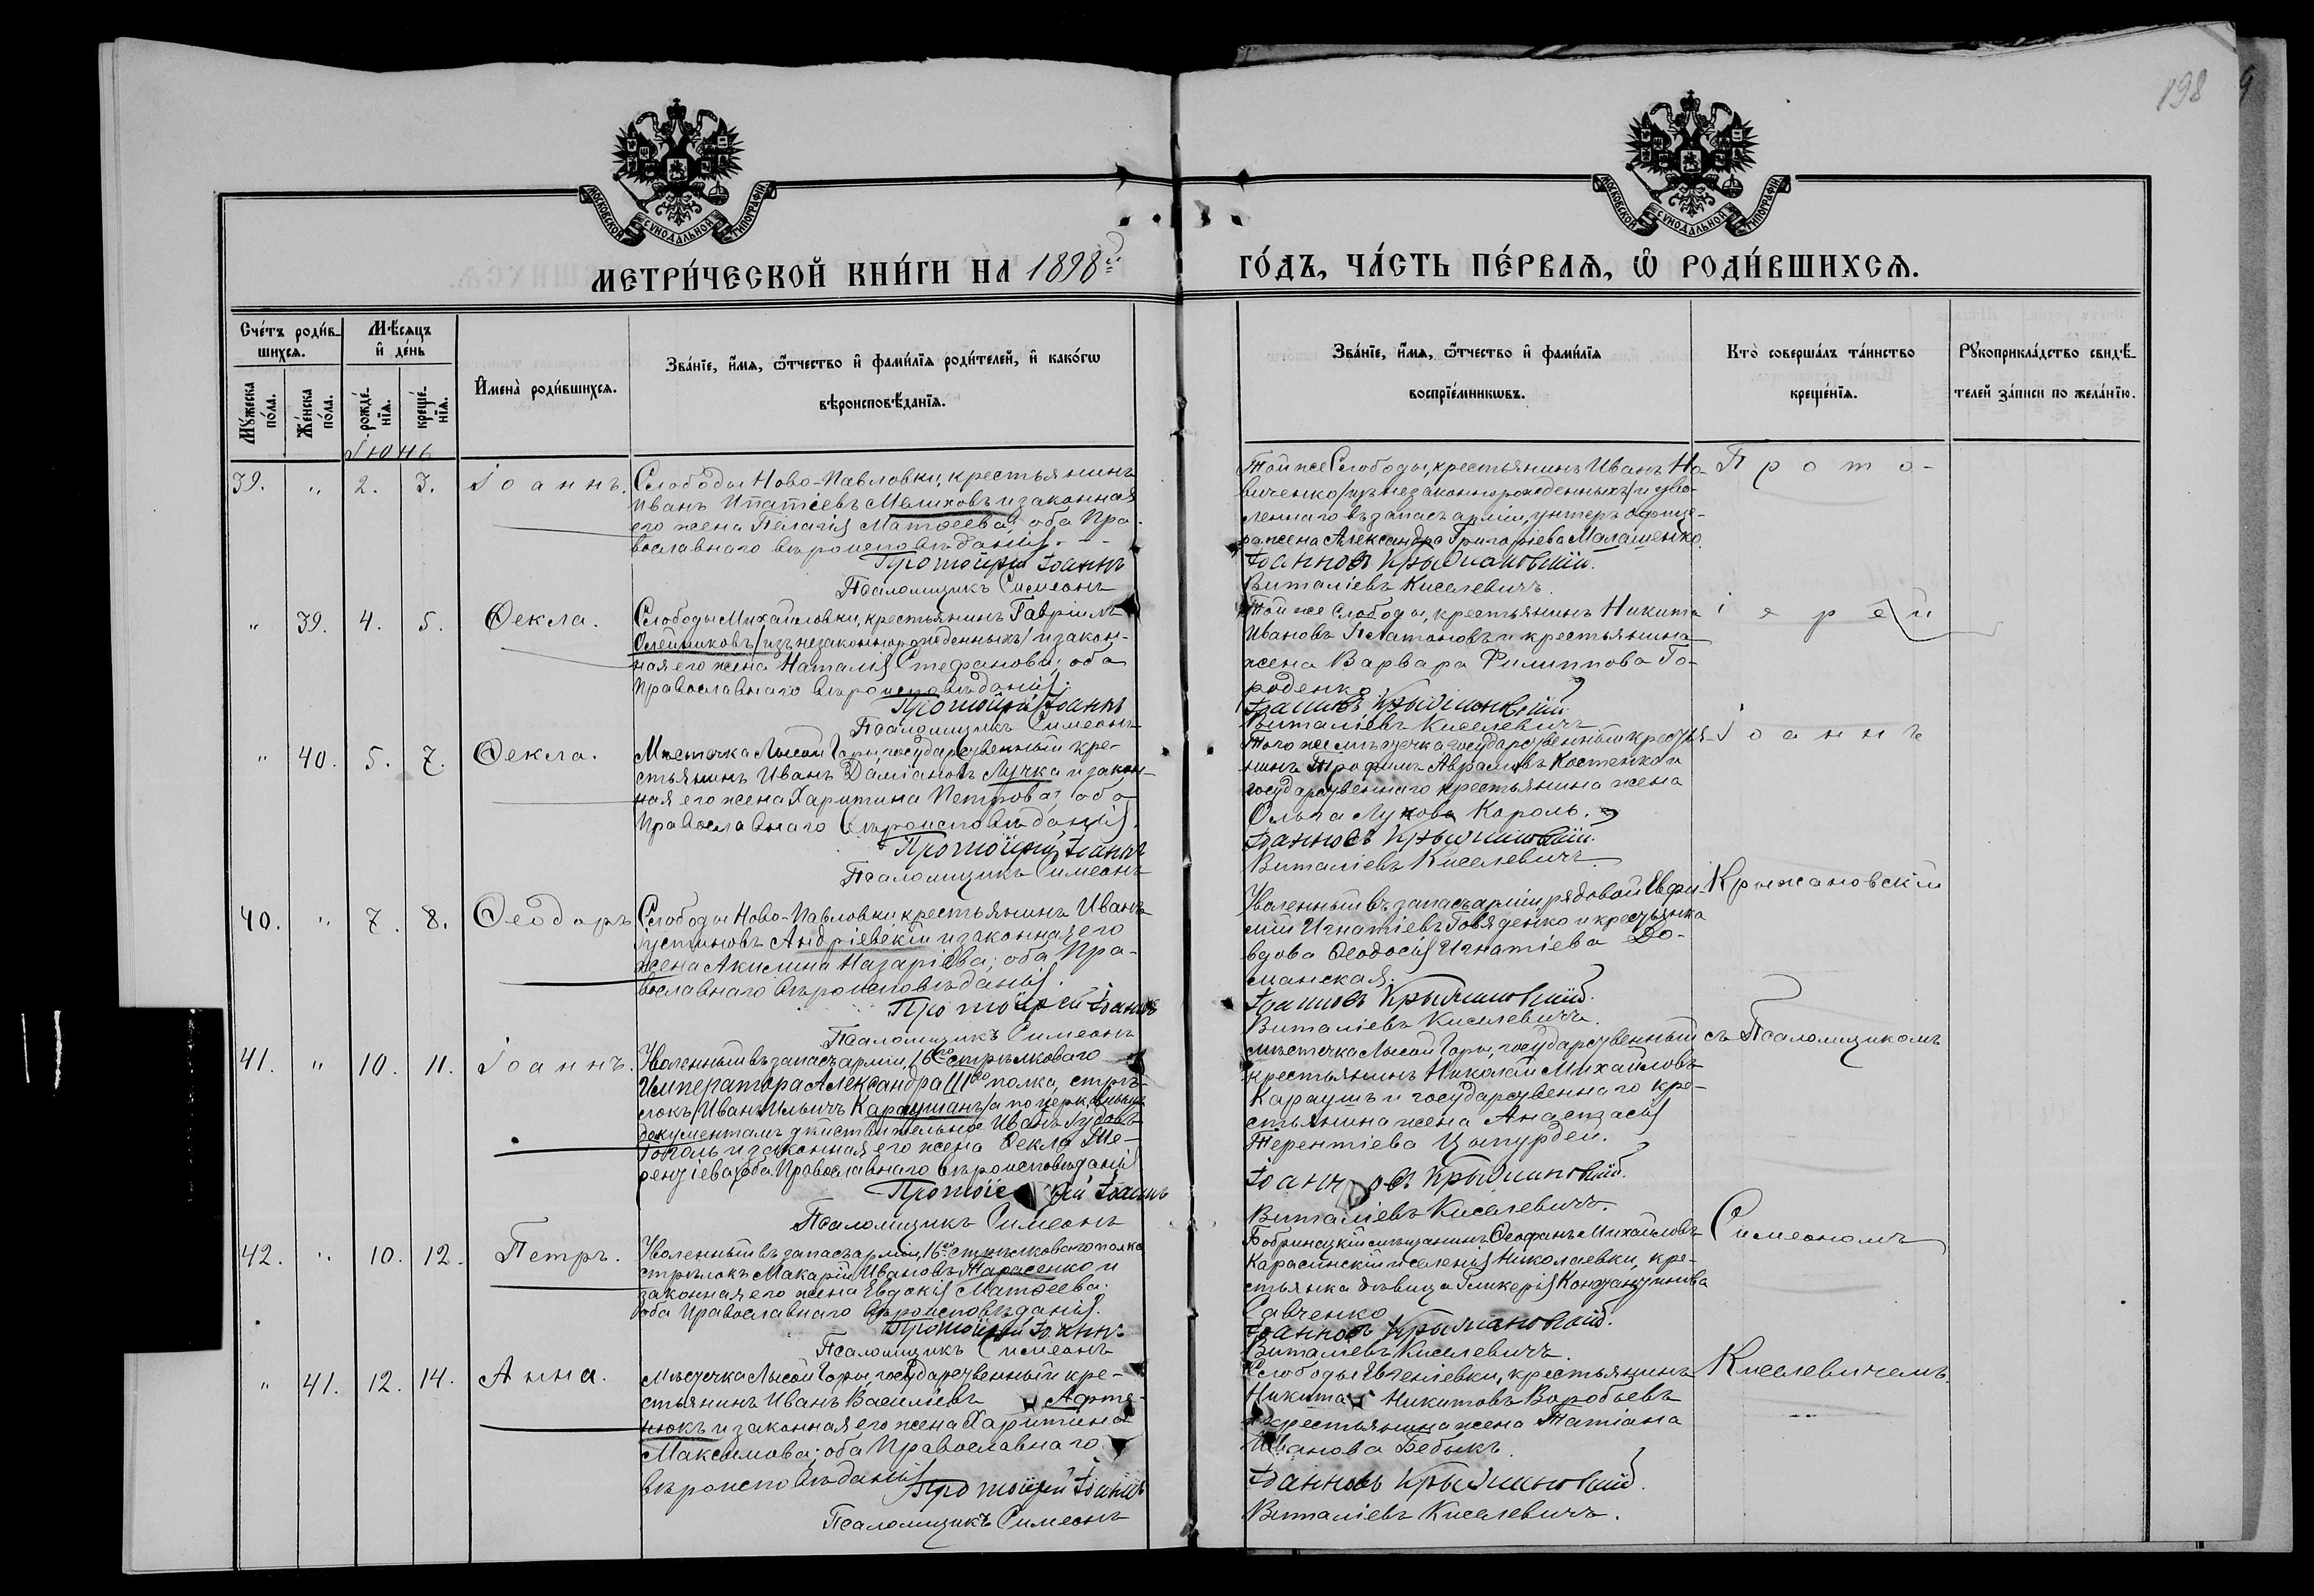 198
МОСКОВСКОЙ СѴНОДАЛЬНОЙ ТИПОГРАФІИ
МОСКОВСКОЙ СѴНОДАЛЬНОЙ ТИПОГРАФІИ
МЕТРИ́ЧЕСКОЙ КНИ́ГИ НА 1898й
ГО́ДЪ, ЧА́СТЬ ПЕ́РВАѦ, Ѡ҆ РОДИ́ВШИХСѦ.
Сче́тъ роди́вшихсѧ.
Мꙋ́жеска по́ла.
Же́нска по́ла.
Мѣ́сѧцъ и҆ де́нь
рожде́нїѧ.
креще́нїѧ.
И҆мена̀ роди́вшихсѧ.
Зва́нїе, и҆́мѧ, ѻ҆́тчество и҆ фами́лїѧ роди́телей, и҆ како́гѡ вѣроисповѣ́данїѧ.
Зва́нїе, и҆́мѧ, ѻ҆́тчество и҆ фами́лїѧ воспрїе́мникѡвъ.
Кто̀ соверша́лъ та́инство креще́нїѧ.
Рꙋкоприкла́дство свидѣ́телей за́писи по жела́нїю.
Іюнь
39. " 2. 3. Іоаннъ.
Слободы Ново-Павловки, крестьянинъ
Иванъ Ипатіевъ Мелиховъ и законная
его жена Пелагія Матѳеева; оба Пра-
вославнаго вѣроисповѣданія.
Протоіерей Іоаннъ
Псаломщикъ Симеонъ
Той же Слободы, крестьянинъ Иванъ Но-
виченко /изъ незаконнорожденныхъ/ и уво-
леннаго въ запасъ арміи, унтеръ офице-
ра жена Александра Григоріева Малашенко.
Іоанновъ Крыжановскій.
Виталіевъ Киселевичъ.
Прото-
" 39. 4. 5. Ѳекла.
Слободы Михайловки, крестьянинъ Гавріилъ
Олейниковъ /изъ незаконнорожденныхъ/ и закон-
ная его жена Наталія Стефанова; оба
Православнаго вѣроисповѣданія.
Протоіерей Іоаннъ
Псаломщикъ Симеонъ
Той же Слободы, крестьянинъ Никита
Ивановъ Платоновъ и крестьянина
жена Варвара Филиппова Го-
роденко
Іоанновъ Крыжановскій
Виталіевъ Киселевичъ
іерей
" 40. 5. 7. Ѳекла.
Мѣстечка Лысой Горы, государственный кре-
стьянинъ Иванъ Даміановъ Лучка и закон-
ная его жена Харитина Петрова; оба
Православнаго вѣроисповѣданія.
Протоіерей Іоаннъ
Псаломщикъ Симеонъ
Того же мѣстечка, государственный крестья-
нинъ Трофимъ Аврамовъ Костенко и
государственнаго крестьянина жена
Ольга Лукова Король.
Іоанновъ Крыжановскій.
Виталіевъ Киселевичъ.
Іоаннъ
40. " 7. 8. Ѳеодоръ
Слободы Ново-Павловки крестьянинъ Иванъ
Іустиновъ Андріевскій и законная его
жена Акилина Назаріева; оба Пра-
вославнаго вѣроисповѣданія.
Протоіерей Іоаннъ
Псаломщикъ Симеонъ
Уволенный въ запасъ арміи рядовой Евфи-
мій Игнатіевъ Говяденко и крестьянка
вдова Ѳеодосія Игнатіева До-
манская.
Іоанновъ Крыжановскій.
Виталіевъ Киселевичъ.
Крыжановскій
41. " 10. 11. Іоаннъ.
Уволенный въ запасъ арміи, 16го стрѣлковаго
Императора Александра IIIго полка, стрѣ-
локъ /Иванъ Ильичъ Караушанъ/ а по церковнымъ
документамъ дѣйствительно Иванъ
Гоголь и законная его жена Ѳекла Те-
рентіева; оба Православнаго вѣроисповѣданія
Протоіерей Іоаннъ
Псаломщикъ Симеонъ
мѣстечка Лысой Горы, государственный
крестьянинъ Николай Михайловъ
Караушъ и государственнаго кре-
стьянина жена Анастасія
Терентіева Цыпурдей.
Іоанновъ Крыжановскій.
Виталіевъ Киселевичъ.
съ Псаломщикомъ
42. " 10. 12. Петръ.
Уволенный въ запасъ арміи, 16го стрѣлковаго полка
стрѣлокъ Макарій Ивановъ Тарасенко и
законная его жена Евдокія Матѳеева;
оба Православнаго вѣроисповѣданія.
Протоіерей Іоаннъ
Псаломщикъ Симеонъ
Бобринецкій мѣщанинъ Ѳеофанъ Михайловъ
Карасинскій и селенія Николаевки, кре-
стьянка дѣвица Гликерія Константинова
Савченко
Іоанновъ Крыжановскій.
Виталіевъ Киселевичъ.
Симеономъ
" 41. 12. 14. Анна.
Мѣстечка Лысой Горы, государственный кре-
стьянинъ Иванъ Василіевъ Афте-
нюкъ и законная его жена Харитина
Максимова; оба Православнаго
вѣроисповѣданія
Протоіерей Іоаннъ
Псаломщикъ Симеонъ
Слободы Евгеніевки, крестьянинъ
Никита Никитовъ Воробьевъ
и крестьянина жена Татіана
Иванова Бебыкъ.
Іоанновъ Крыжановскій.
Виталіевъ Киселевичъ.
Киселевичемъ.